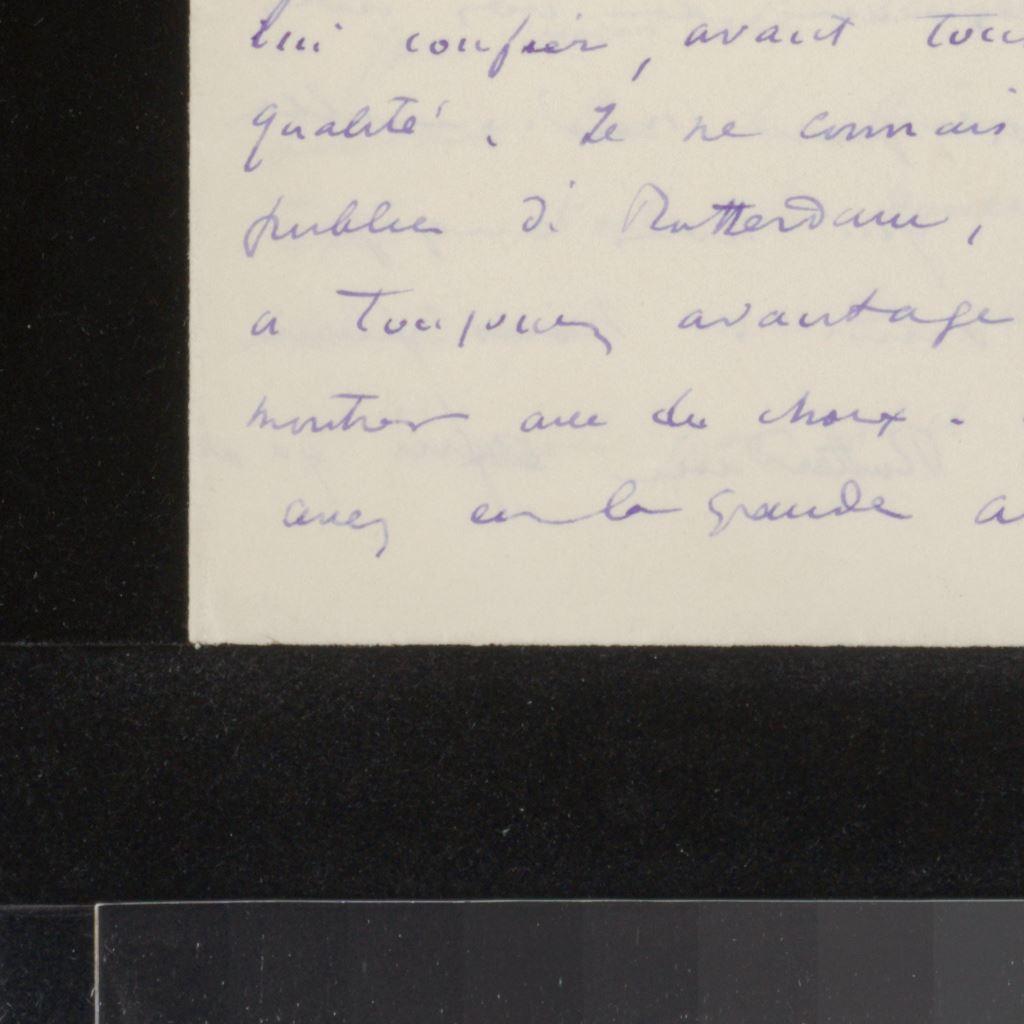 lui confier, avant tou
qualité. Je ne connais
public de Rotterdam,
a toujours avantage
montrer avec du choix.
avez eu la grande a